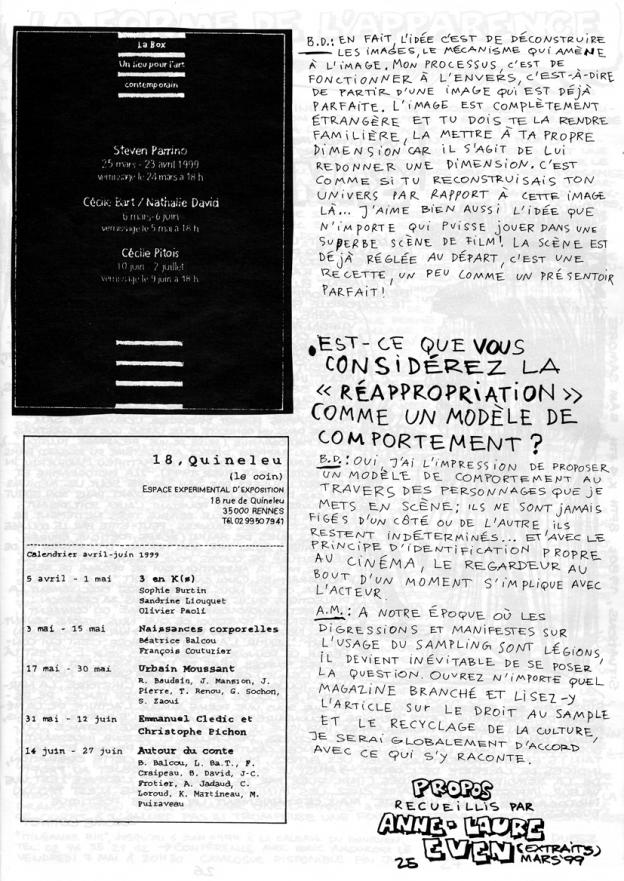 La Box
Un lieu pour l'art
contemporain
Steven Parrino
25 mars - 23 avril 1999
vernissage le 24 mars à 18 h
Cécile Bart / Nathalie David
6 mars - 6 juin
vernissage le 5 mai à 18 h
Cécile Pitois
10 juin - 2 juillet
vernissage le 9 juin à 18 h
18, Quineleu
(le coin)
ESPACE EXPERIMENTAL D'EXPOSITION
18 rue de Quineleu
35000 RENNES
Tél. 02 99 50 79 41
Calendrier avril-juin 1999
5 avril - 1 mai 3 en K(s)
Sophie Burtin
Sandrine Liouquet
Olivier Paoli
3 mai - 15 mai Naissances corporelles
Béatrice Balcou
François Couturier
17 mai - 30 mai Urbain Moussant
R. Baudain, J. Mansion, J.
Pierre, T. Renou, G. Sochon,
S. Zaoui
31 mai - 12 juin Emmanuel Cledic et
Christophe Pichon
14 juin - 27 juin Autour du conte
B. Balcou, L. Ba.T., F.
Craipeau, B. David, J-C.
Frotier, A. Jadaud, C.
Loroud, K. Martineau, M.
Puizaveau
B.D.: EN FAIT, L'IDÉE C'EST DE DÉCONSTRUIRE
LES IMAGES, LE MÉCANISME QUI AMÈNE
À L'IMAGE. MON PROCESSUS, C'EST DE
FONCTIONNER À L'ENVERS, C'EST-À-DIRE
DE PARTIR D'UNE IMAGE QUI EST DÉJÀ
PARFAITE. L'IMAGE EST COMPLÈTEMENT
ÉTRANGÈRE ET TU DOIS TE LA RENDRE
FAMILIÈRE, LA METTRE À TA PROPRE
DIMENSION CAR IL S'AGIT DE LUI
REDONNER UNE DIMENSION. C'EST
COMME SI TU RECONSTRUISAIS TON
UNIVERS PAR RAPPORT À CETTE IMAGE
LÀ... J'AIME BIEN AUSSI L'IDÉE QUE
N'IMPORTE QUI PUISSE JOUER DANS UNE
SUPERBE SCÈNE DE FILM! LA SCÈNE EST
DÉJÀ RÉGLÉE AU DÉPART, C'EST UNE
RECETTE, UN PEU COMME UN PRÉSENTOIR
PARFAIT!
.EST-CE QUE VOUS
CONSIDÉREZ LA
« RÉAPPROPRIATION »
COMME UN MODÈLE DE
COMPORTEMENT ?
B.D.: OUI, J'AI L'IMPRESSION DE PROPOSER
UN MODÈLE DE COMPORTEMENT AU
TRAVERS DES PERSONNAGES QUE JE
METS EN SCÈNE; ILS NE SONT JAMAIS
FIGÉS D'UN CÔTÉ OU DE L'AUTRE, ILS
RESTENT INDÉTERMINÉS... ET AVEC LE
PRINCIPE D'IDENTIFICATION PROPRE
AU CINÉMA, LE REGARDEUR AU
BOUT D'UN MOMENT S'IMPLIQUE AVEC
L'ACTEUR.
A.M.: A NOTRE ÉPOQUE OÙ LES
DIGRESSIONS ET MANIFESTES SUR
L'USAGE DU SAMPLING SONT LÉGIONS,
IL DEVIENT INÉVITABLE DE SE POSER
LA QUESTION. OUVREZ N'IMPORTE QUEL
MAGAZINE BRANCHÉ ET LISEZ-Y
L'ARTICLE SUR LE DROIT AU SAMPLE
ET LE RECYCLAGE DE LA CULTURE,
JE SERAI GLOBALEMENT D'ACCORD
AVEC CE QUI S'Y RACONTE.
PROPOS
RECUEILLIS PAR
ANNE-LAURE
EVEN (EXTRAITS)
MARS '99
25